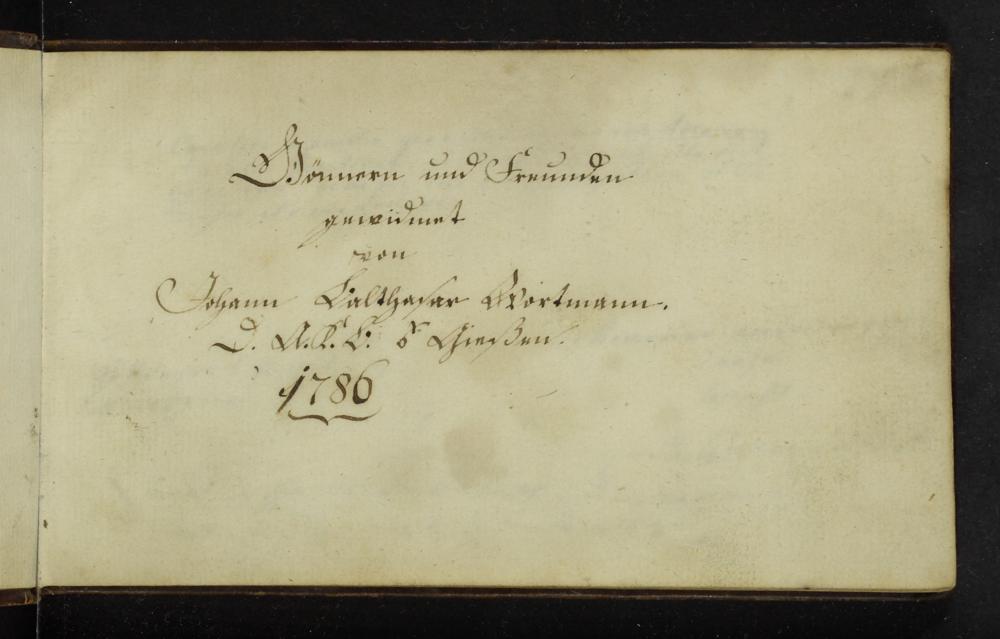 Gönnern und Freunden
gewidmet
von
Johann Balthasar Wortmann.
D. A. K. B. z Gießen.
1786